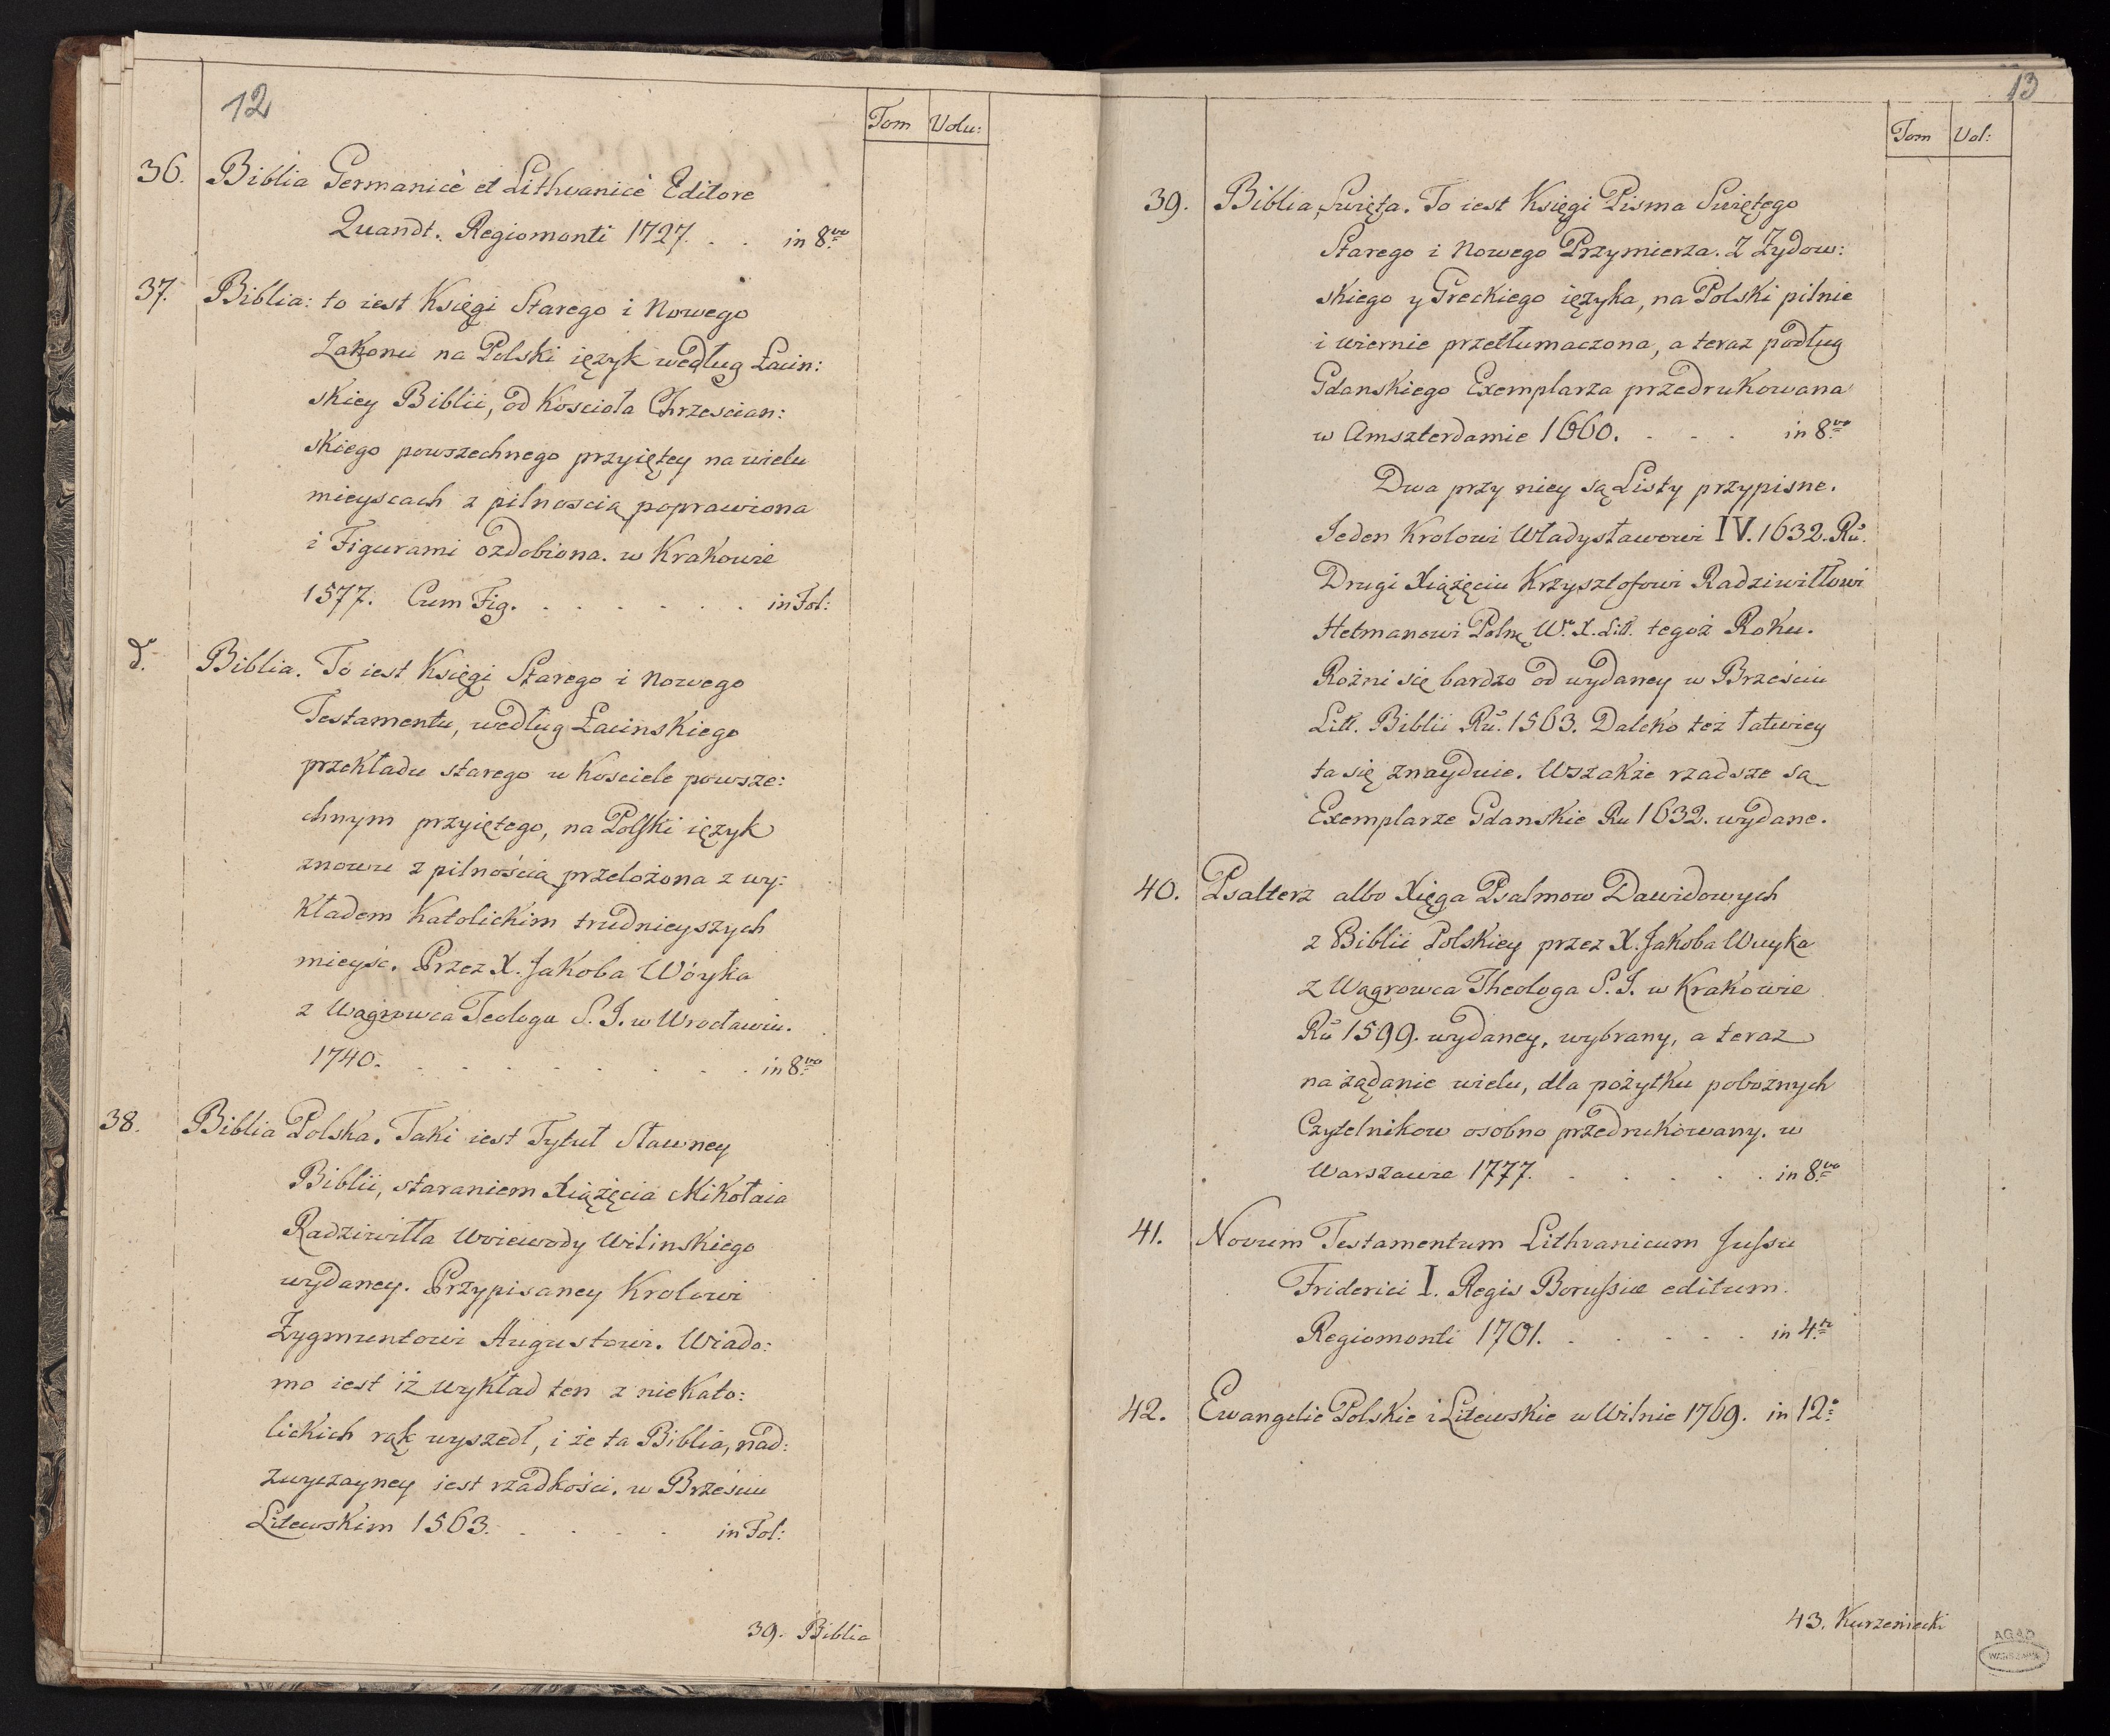 12
Tom Volu:
36. Biblia Germanicè et Lithvanicè Editore
Quandt. Regiomonti 1727. . . in 8vo
37. Biblia: to iest Księgi Starego i Nowego
Zakonu na Polski ięzyk według Łacin:
skiey Biblii, od Kościoła Chrzescian:
skiego powszechnego przyiętey na wielu
mieyscach z pilnoscią poprawiona
i Figurami ozdobiona. w Krakowie
1577. Cum Fig. . . . . . . in Fol:
d. Biblia. To iest Księgi Starego i Nowego
Testamentu, według Łacinskiego
przekładu starego w Kosciele powsze:
chnym przyiętego, na Polski ięzyk
znowu z pilnością przelożona z wy:
kładem Katolickim trudnieyszych
mieysć. Przez X. Jakoba Wóyka
z Wągrowca Teologa S. J. w Wrocławiu.
1740. . . . . . . . . in 8vo
38. Biblia Polska. Taki iest Tytuł Sławney
Biblii, staraniem Xiążęcia Mikołaia
Radziwiłła Woiewody Wilinskiego
wydaney. Przypisaney Krolowi
Zygmuntowi Augustowi. Wiado:
mo iest iż wykład ten z nieKato:
lickich rąk wyszedł, i że ta Biblia, nad:
zwyczayney iest rzadkości. w Brześciu
Litewskim 1563. . . . . in Fol:
39. Biblia
13
Tom Vol:
39. Biblia, Swięta. To iest Księgi Pisma Swiętego
Starego i Nowego Przymierza. Z Żydow:
skiego y Greckiego ięzyka, na Polski pilnie
i wiernie przetłumaczona, a teraz podług
Gdanskiego Exemplarza przedrukowana
w Amszterdamie 1660. . . . in 8vo
Dwa przy niey są Listy przypisne.
Jeden Krolowi Władysławowi IV. 1632. Ru.
Drugi Xiążęciu Krzysztofowi Radziwiłłowi
Hetmanowi Polnę W. X. Litt. tegoż Roku.
Rożni się bardzo od wydaney w Brześciu
Litt. Biblii Ru. 1563. Daleko też łatwiey
ta się znayduie. Wszakże rzadsze są
Exemplarze Gdanskie Ru 1632. wydane.
40. Psałterz albo Xięga Psalmow Dawidowych
z Biblii Polskiey przez X. Jakoba Wuyka
z Wągrowca Theologa S. J. w Krakowie
Ru 1599. wydaney, wybrany, a teraz
na żądanie wielu, dla pożytku pobożnych
Czytelnikow osobno przedrukowany. w
Warszawie 1777. . . . . . in 8vo
41. Novum Testamentum Lithvanicum Jussu
Friderici I. Regis Borussiæ editum.
Regiomonti 1701. . . . . . in 4to
42. Ewangelie Polskie i Litewskie w Wilnie 1769. in 12o
43. Kurzeniecki
AGAD
WARSZAWA